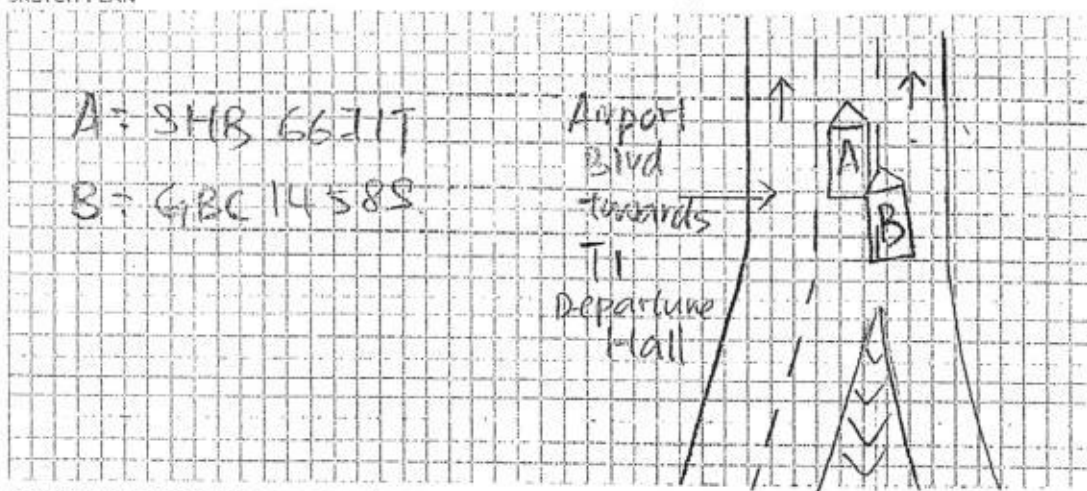 A = SHB 6631T
B = GBC 1458S
Airport
Blvd
towards
T1
Departure
Hall
A
B